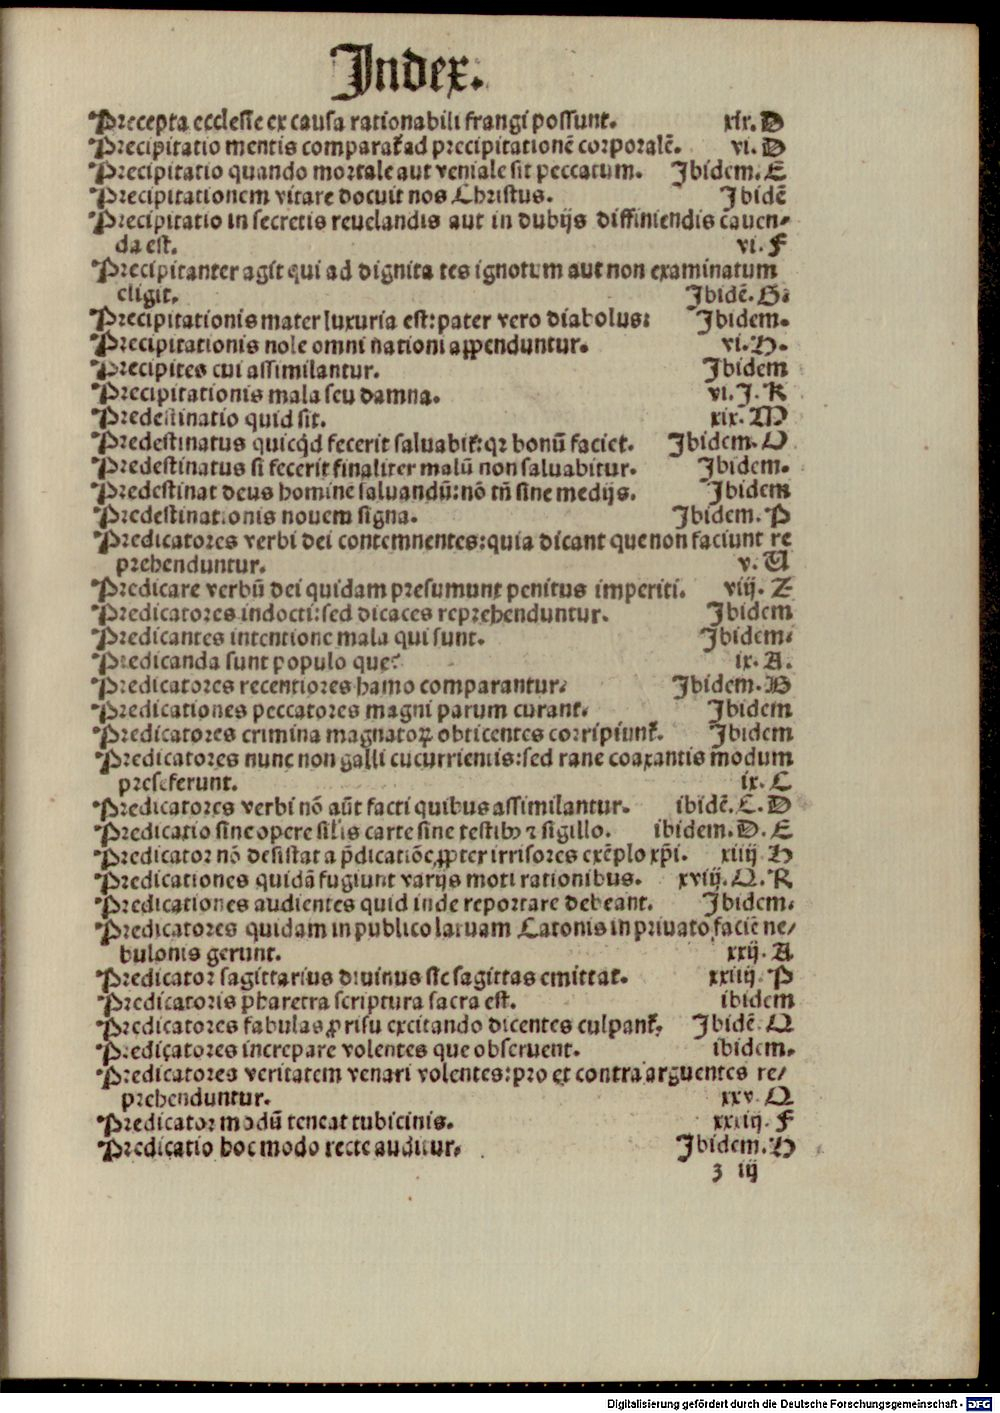 Index.
Precepta ecclesie ex causa rationabili frangi possunt. xix. D
Precipitatio mentis comparat᷑ ad precipitationē corporalē. vi. D
Precipitatio quando mortale aut veniale sit peccatum. Ibidem. E
Precipitationem vitare docuit nos Christus. Ibidē
Precipitatio in secretis reuelandis aut in dubijs diffiniendis cauen/
da est. vi. F
Precipitanter agit qui ad dignita tes ignotum aut non examinatum
eligit. Ibidē. G.
Precipitationis mater luxuria est: pater vero diabolus: Ibidem.
Precipitationis nole omni nationi aꝓpenduntur. vi. H.
Precipites cui assimilantur. Ibidem
Precipitationis mala seu damna. vi. I. K
Predestinatio quid sit. xix. M
Predestinatus quicq̇d fecerit saluabit᷑: qꝛ bonū faciet. Ibidem. O
Predestinatus si fecerit finaliter malū non saluabitur. Ibidem.
Predestinat deus hominē saluandū: nō tn̄ sine medijs. Ibidem
Predestinationis nouem signa. Ibidem. P
Predicatores verbi dei contemnentes: quia dicant que non faciunt re
prehenduntur. v. U
Predicare verbū dei quidam presumunt penitus imperiti. viij. Z
Predicatores indocti: sed dicaces reprehenduntur. Ibidem
Predicantes intentione mala qui sunt. Ibidem.
Predicanda sunt populo que? ix. A.
Predicatores recentiores hamo comparantur. Ibidem. B
Predicationes peccatores magni parum curant. Ibidem
Predicatores crimina magnatoꝝ obticentes corripiunt᷑. Ibidem
Predicatores nunc non galli cucurrientis: sed rane coaxantis modum
preseferunt. ix. C
Predicatores verbi nō aūt facti quibus assimilantur. ibidē. C. D
Predicatio sine opere sil̄is carte sine testibꝫ ⁊ sigillo. ibidem. D. E
Predicator nō desistat a p̄dicatiōe ꝓpter irrisores exēplo xp̄i. xiiij H
Predicationes quidā fugiunt varijs moti rationibus. xviij. Q. R
Predicationes audientes quid inde reportare debeant. Ibidem.
Predicatores quidam in publico laruam Catonis in priuato faciē ne/
bulonis gerunt. xxij. A
Predicator sagittarius diuinus sic sagittas emittat. xxiiij. P
Predicatoris pharetra scriptura sacra est. ibidem
Predicatores fabulas ꝓ risu excitando dicentes culpant᷑. Ibidē Q
Predicatores increpare volentes que obseruent. ibidem.
Predicatores veritatem venari volentes: pro et contra arguentes re/
prehenduntur. xxv. Q
Predicator modū teneat tubicinis. xxxiij. F
Predicatio hoc modo recte auditur. Ibidem. H
3 iij
Digitalisierung gefördert durch die Deutsche Forschungsgemeinschaft - DFG